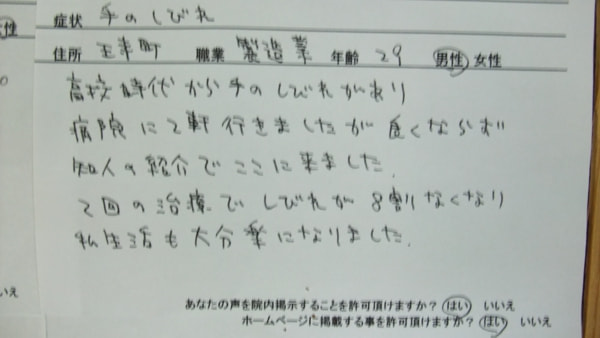 症状 手のしびれ
住所 玉東町 職業 製造業 年齢 29 男性 女性
高校時代から手のしびれがあり
病院に2軒行きましたが良くならず
知人の紹介でここに来ました。
2回の治療でしびれが8割なくなり
私生活も大分楽になりました。
あなたの声を院内掲示することを許可頂けますか? はい いいえ
ホームページに掲載する事を許可頂けますか? はい いいえ
性
いえ